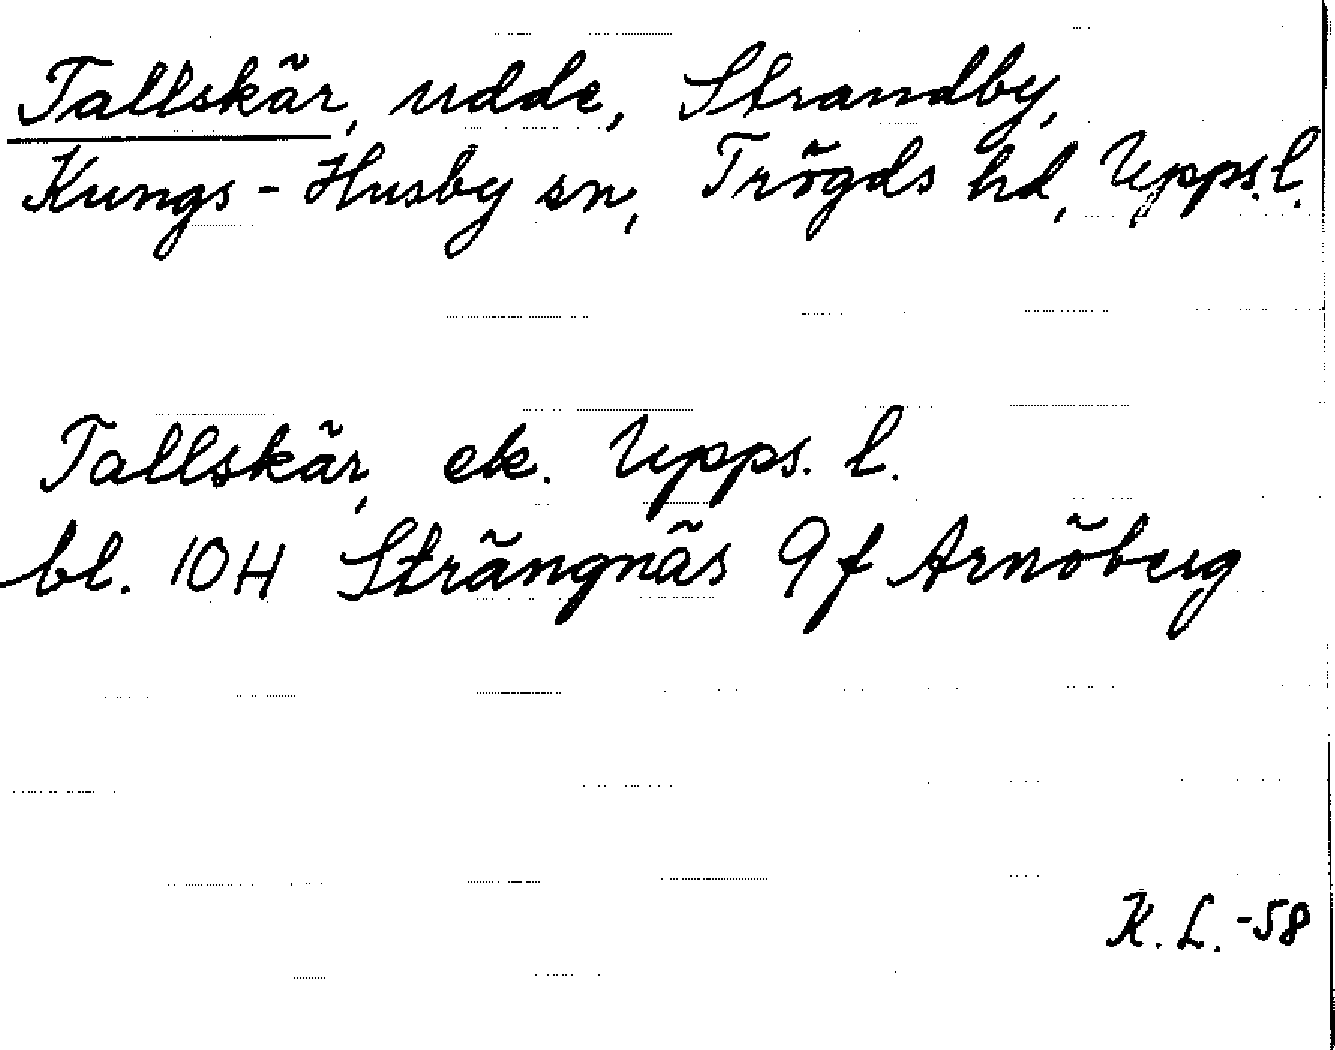 Tallskär, udde, Strandby,
Kungs-Husby sn, Trögds hd, Upps. l.
Tallskär, ek. Upps. l.
bl. 10H Strängnäs 9f Arnöberg
K. L. -58